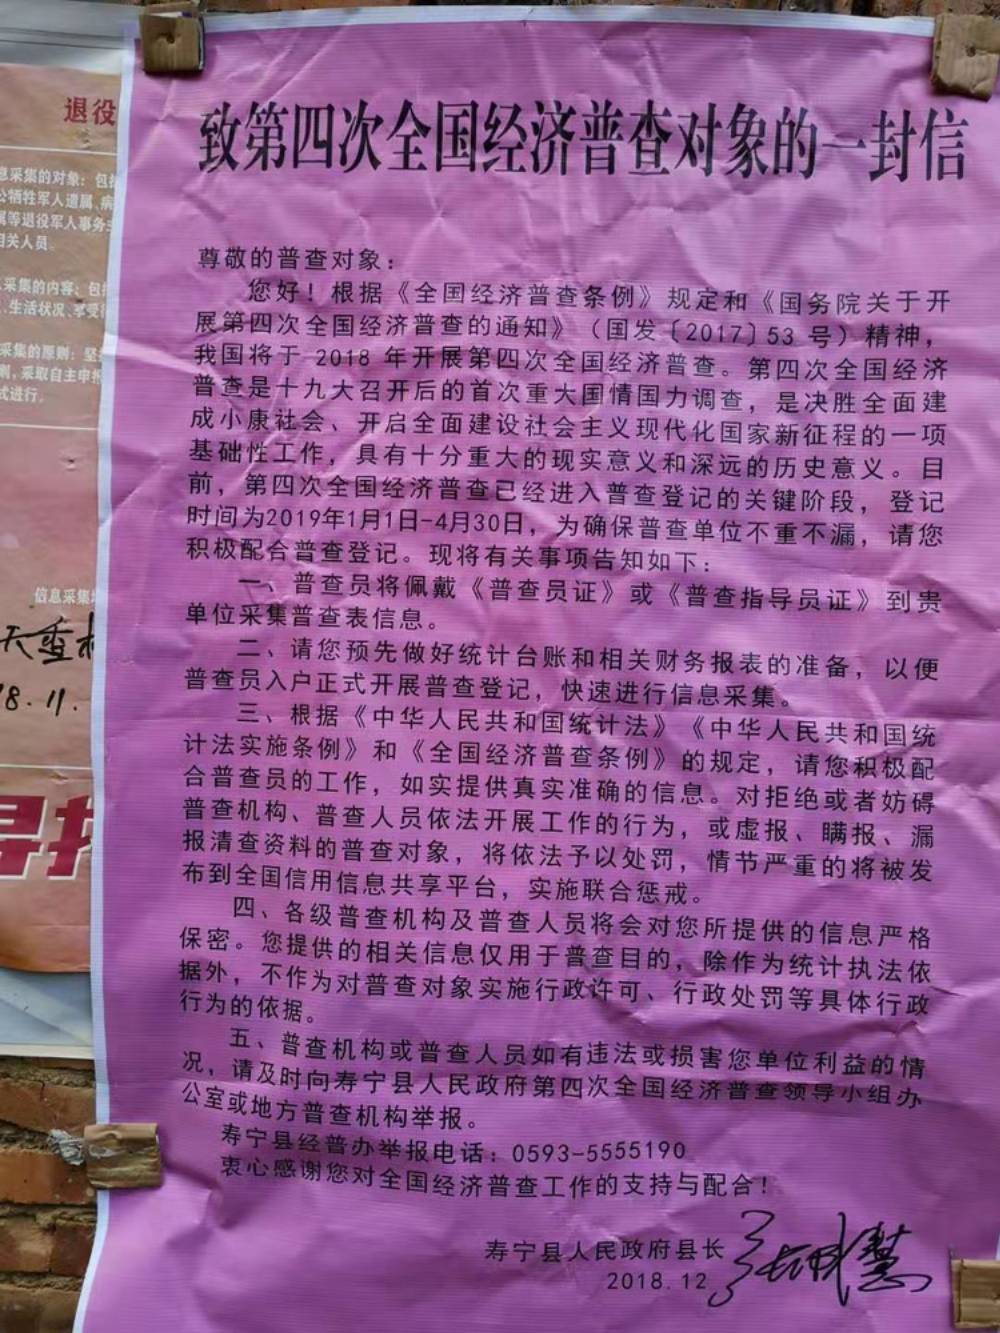 致第四次全国经济普查对象的一封信
尊敬的普查对象：
您好！根据《全国经济普查条例》规定和《国务院关于开
展第四次全国经济普查的通知》（国发〔2017〕53 号）精神，
我国将于 2018 年开展第四次全国经济普查。第四次全国经济
普查是十九大召开后的首次重大国情国力调查，是决胜全面建
成小康社会、开启全面建设社会主义现代化国家新征程的一项
基础性工作，具有十分重大的现实意义和深远的历史意义。目
前，第四次全国经济普查已经进入普查登记的关键阶段，登记
时间为2019年1月1日-4月30日，为确保普查单位不重不漏，请您
积极配合普查登记。现将有关事项告知如下：
一、普查员将佩戴《普查员证》或《普查指导员证》到贵
单位采集普查表信息。
二、请您预先做好统计台账和相关财务报表的准备，以便
普查员入户正式开展普查登记，快速进行信息采集。
三、根据《中华人民共和国统计法》《中华人民共和国统
计法实施条例》和《全国经济普查条例》的规定，请您积极配
合普查员的工作，如实提供真实准确的信息。对拒绝或者妨碍
普查机构、普查人员依法开展工作的行为，或虚报、瞒报、漏
报清查资料的普查对象，将依法予以处罚，情节严重的将被发
布到全国信用信息共享平台，实施联合惩戒。
四、各级普查机构及普查人员将会对您所提供的信息严格
保密。您提供的相关信息仅用于普查目的，除作为统计执法依
据外，不作为对普查对象实施行政许可、行政处罚等具体行政
行为的依据。
五、普查机构或普查人员如有违法或损害您单位利益的情
况，请及时向寿宁县人民政府第四次全国经济普查领导小组办
公室或地方普查机构举报。
寿宁县经普办举报电话：0593-5555190
衷心感谢您对全国经济普查工作的支持与配合！
寿宁县人民政府县长
2018.12
退役
息采集的对象：包
公牺牲军人遗属、病
属等退役军人事务
相关人员
采集的内容：包
、生活状况、享受
采集的原则：坚
则，采取自主申报
式进行。
信息采集
8.11.